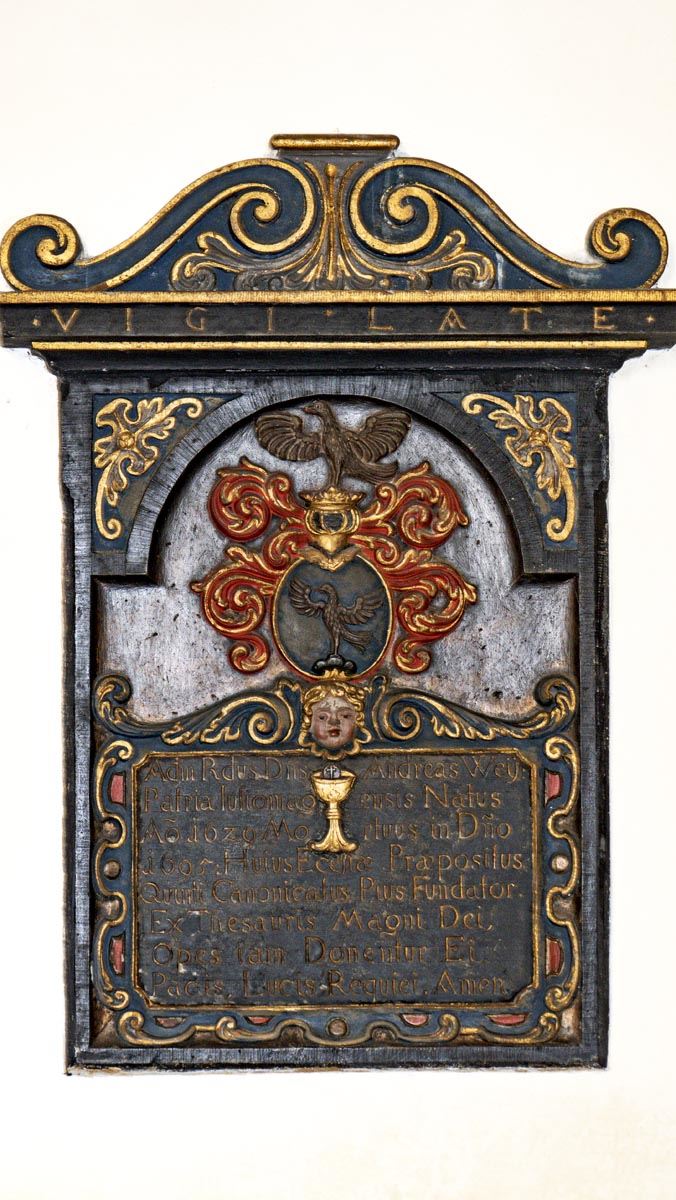 ·VIGI·LATE·
Adm Rdus Dns Andreas Wey
Patria Iustomag ensis Natus
Aõ. 1629 Mo rtuus in Dño
1695. Huius Eccłæ Præpositus
Canonicatus Pius Fundator.
Ex Thesauris Magni Dei,
Opes iam Donentur Ei.
Pacis, Lucis Requiei. Amen.